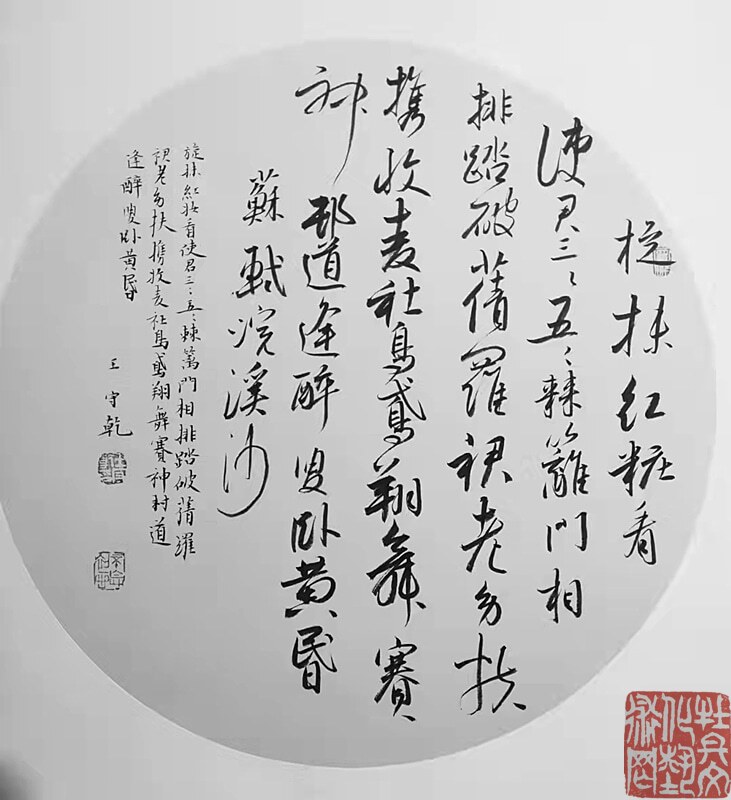 旋抹红粧看
使君三々五々棘籬門相
排踏破蒨羅裙老幼扶
携收麦社鳥鳶翔舞賽
神邨道逢醉叟卧黄昏
蘇軾浣溪沙
旋抹红妆看使君三々五々棘篱門相排踏破蒨羅
裙老幼扶攜收麦社鳥鳶翔舞賽神村道
逢醉叟卧黄昏
王守乾